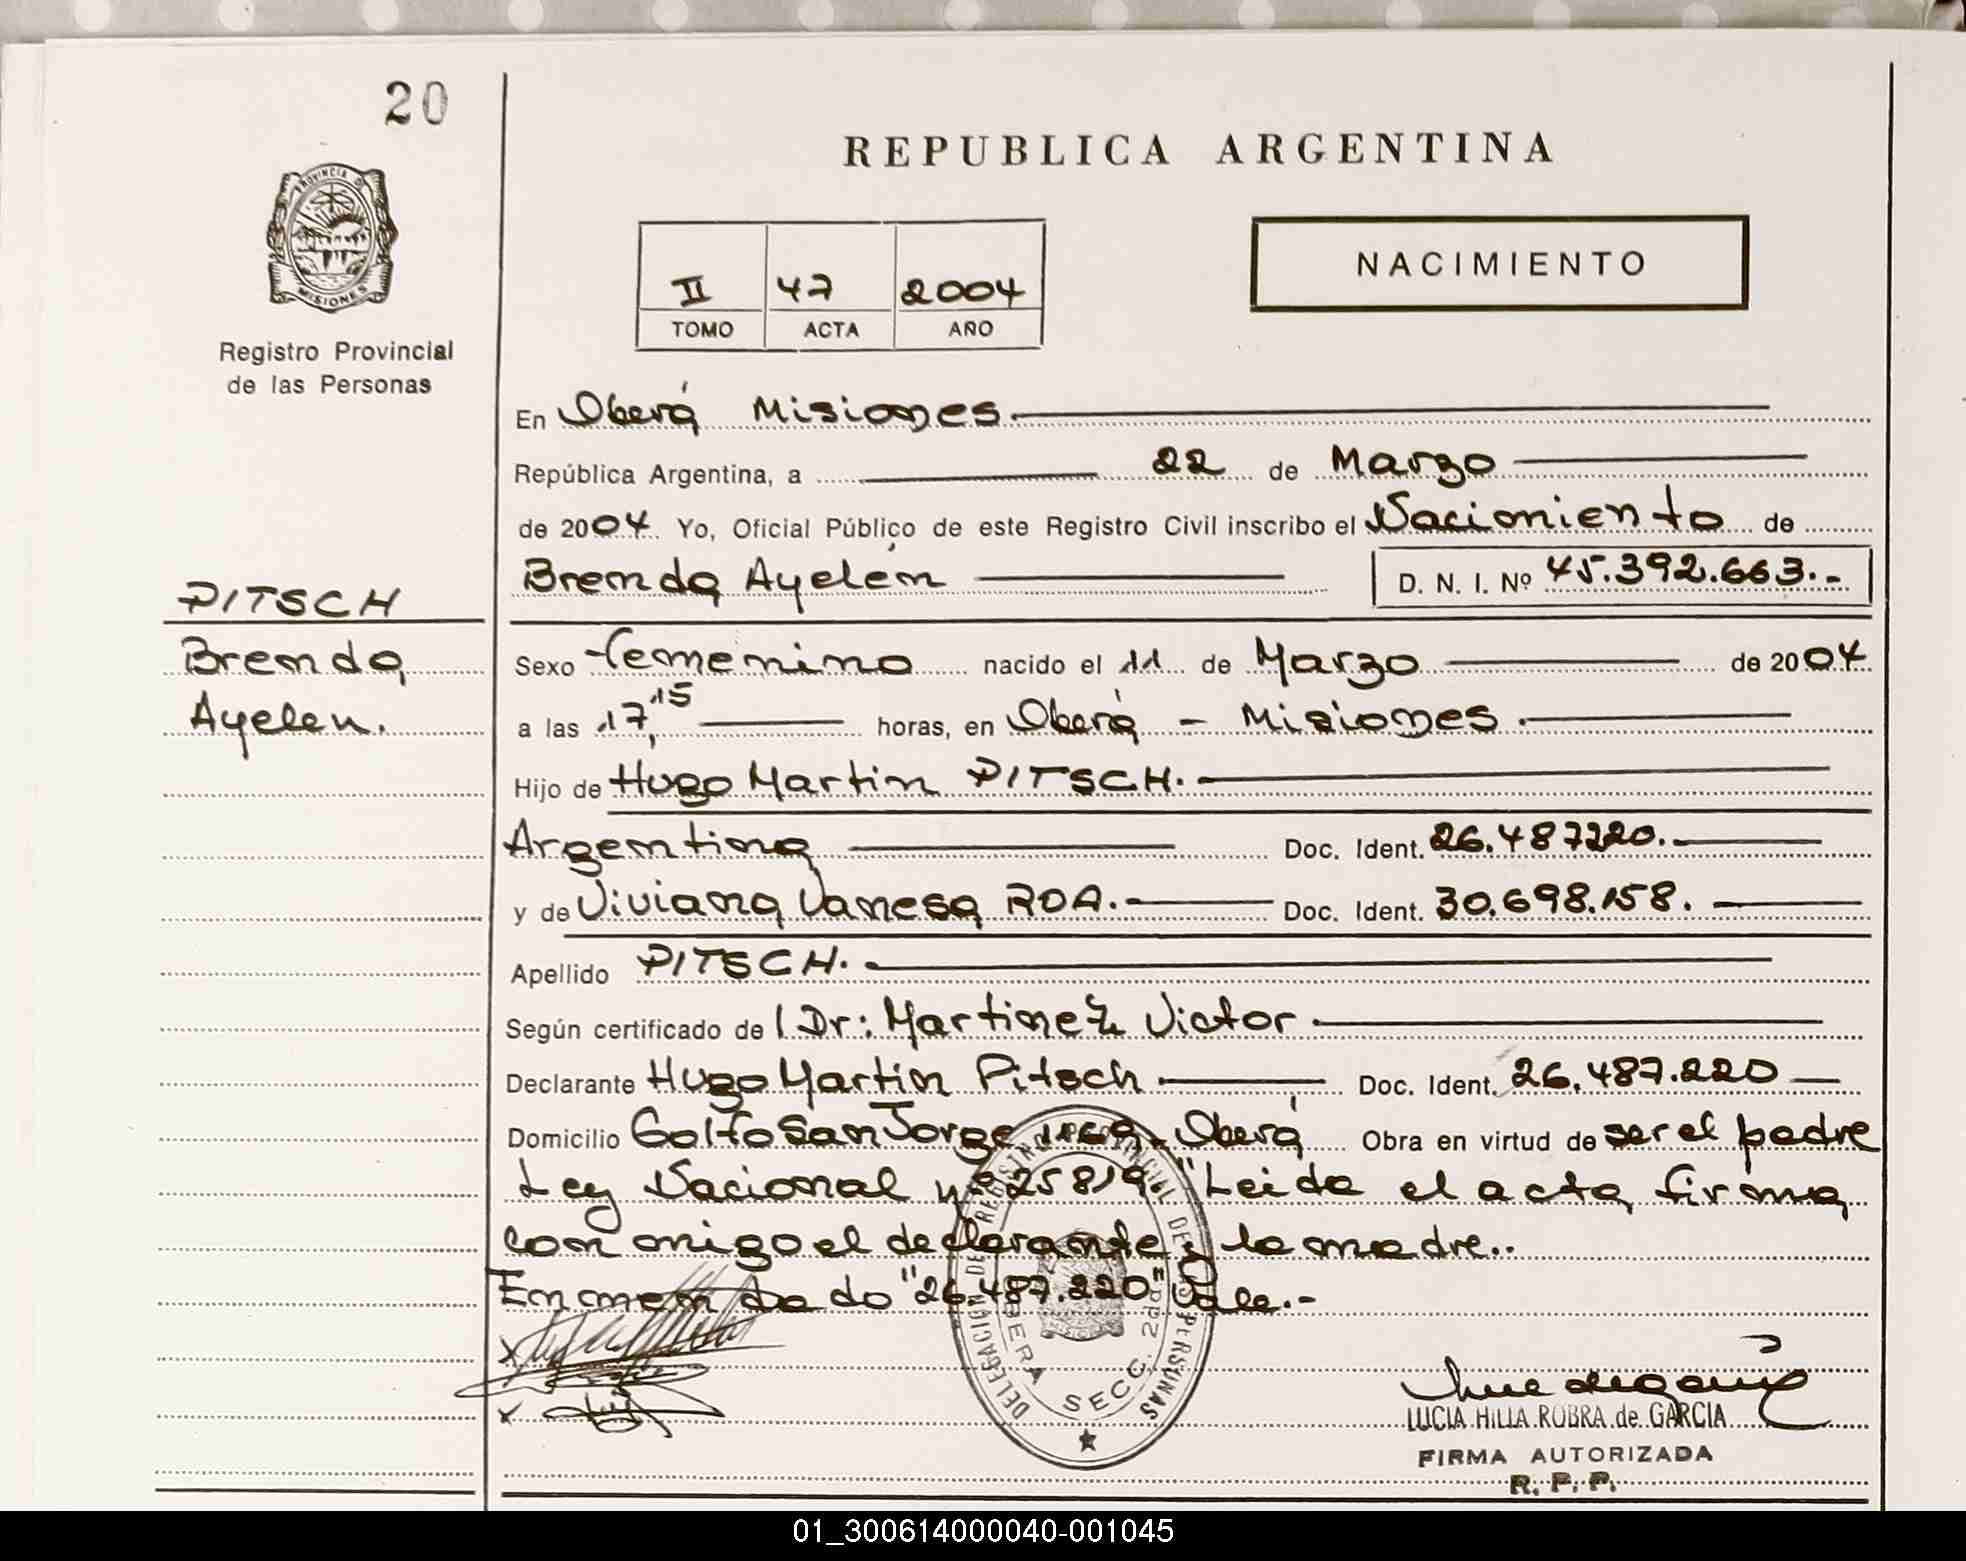 20
PROVINCIA DE
MISIONES
Registro Provincial
de las Personas
REPUBLICA ARGENTINA
II 47 2004
TOMO ACTA AÑO
NACIMIENTO
En Oberá Misiones.
República Argentina, a 22 de Marzo
de 2004. Yo, Oficial Público de este Registro Civil inscribo el Nacimiento de
Brenda Ayelén D. N. I. Nº 45.392.663.-
PITSCH
Brenda
Ayelen.
Sexo femenino nacido el 11 de Marzo de 2004
a las 17,15 horas, en Oberá - Misiones.
Hijo de Hugo Martin PITSCH.
Argentina Doc. Ident. 26.487220.
y de Viviana Vanesa ROA. Doc. Ident. 30.698.158.
Apellido PITSCH.
Según certificado de l Dr: Martinez Victor
Declarante Hugo Martin Pitsch Doc. Ident. 26.487.220
Domicilio Golfo San Jorge 1169. Oberá Obra en virtud de ser el padre
Ley Nacional Nº 25819. "Leida el acta firma
conmigo el declarante y la madre..
Enmendado "26.487.220" Vale.-
DELEGACION DE REGISTRO PROVINCIAL DE LAS PERSONAS
OBERA SECC. 2da
LUCIA HILLA ROBRA de GARCIA
FIRMA AUTORIZADA
R. P. P.
01_300614000040-001045